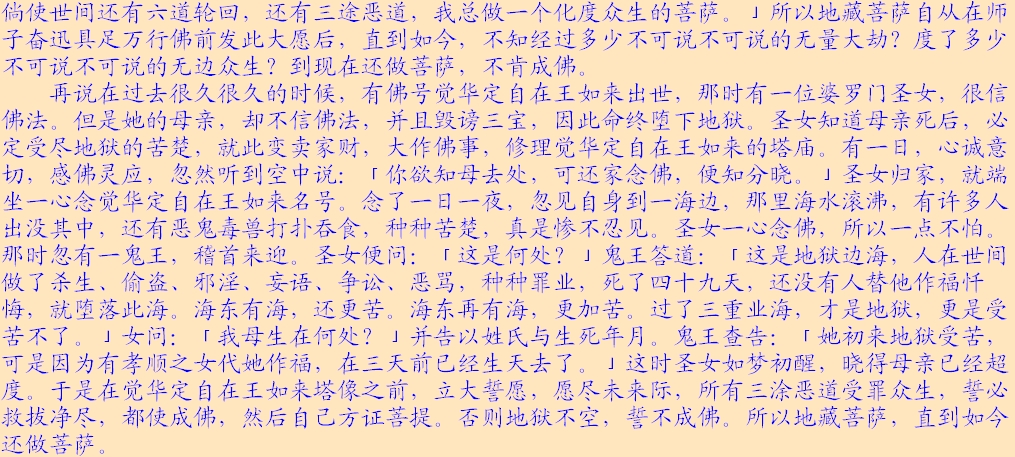 倘使世间还有六道轮回，还有三途恶道，我总做一个化度众生的菩萨。」所以地藏菩萨自从在师
子奋迅具足万行佛前发此大愿后，直到如今，不知经过多少不可说不可说的无量大劫？度了多少
不可说不可说的无边众生？到现在还做菩萨，不肯成佛。
再说在过去很久很久的时候，有佛号觉华定自在王如来出世，那时有一位婆罗门圣女，很信
佛法。但是她的母亲，却不信佛法，并且毁谤三宝，因此命终堕下地狱。圣女知道母亲死后，必
定受尽地狱的苦楚，就此变卖家财，大作佛事，修理觉华定自在王如来的塔庙。有一日，心诚意
切，感佛灵应，忽然听到空中说：「你欲知母去处，可还家念佛，便知分晓。」圣女归家，就端
坐一心念觉华定自在王如来名号。念了一日一夜，忽见自身到一海边，那里海水滚沸，有许多人
出没其中，还有恶鬼毒兽打扑吞食，种种苦楚，真是惨不忍见。圣女一心念佛，所以一点不怕。
那时忽有一鬼王，稽首来迎。圣女便问：「这是何处？」鬼王答道：「这是地狱边海，人在世间
做了杀生、偷盗、邪淫、妄语、争讼、恶骂，种种罪业，死了四十九天，还没有人替他作福忏
悔，就堕落此海。海东有海，还更苦。海东再有海，更加苦。过了三重业海，才是地狱，更是受
苦不了。」女问：「我母生在何处？」并告以姓氏与生死年月。鬼王查告：「她初来地狱受苦，
可是因为有孝顺之女代她作福，在三天前已经生天去了。」这时圣女如梦初醒，晓得母亲已经超
度。于是在觉华定自在王如来塔像之前，立大誓愿，愿尽未来际，所有三涂恶道受罪众生，誓必
救拔净尽，都使成佛，然后自己方证菩提。否则地狱不空，誓不成佛。所以地藏菩萨，直到如今
还做菩萨。